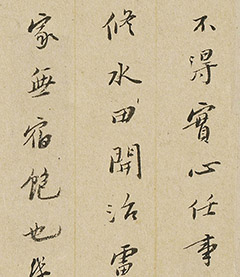 不得實心任事
修水田開治雷
家無宿飽也